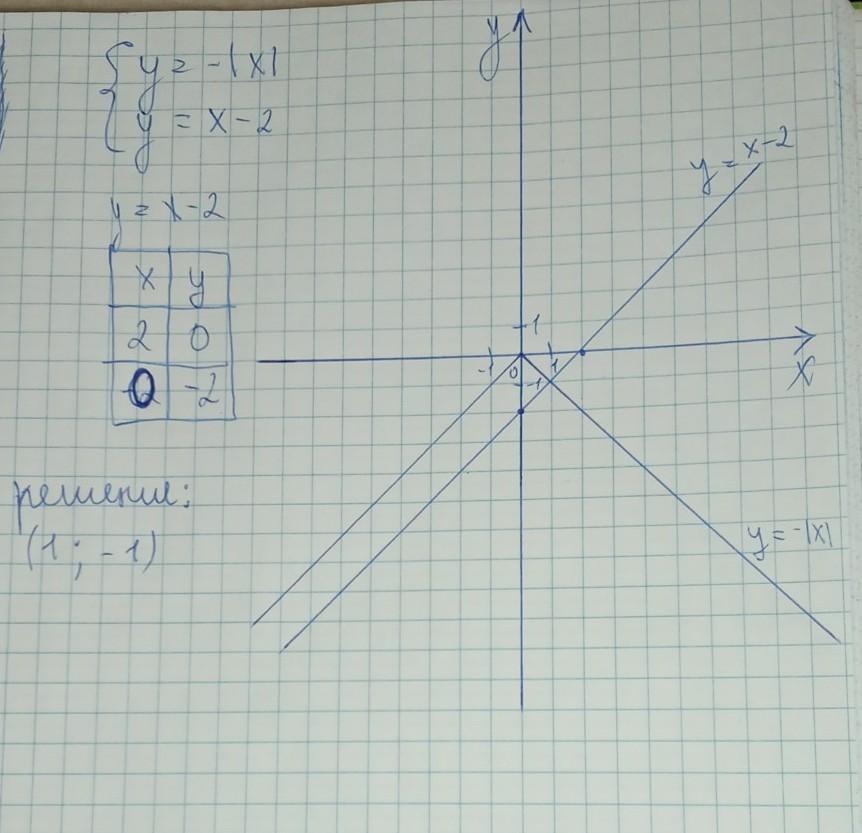 y = -|x|
y = x-2
y = x-2
x y
2 0
0 -2
решение:
(1; -1)
y
y = x-2
1
-1 0 1
-1
x
y = -|x|